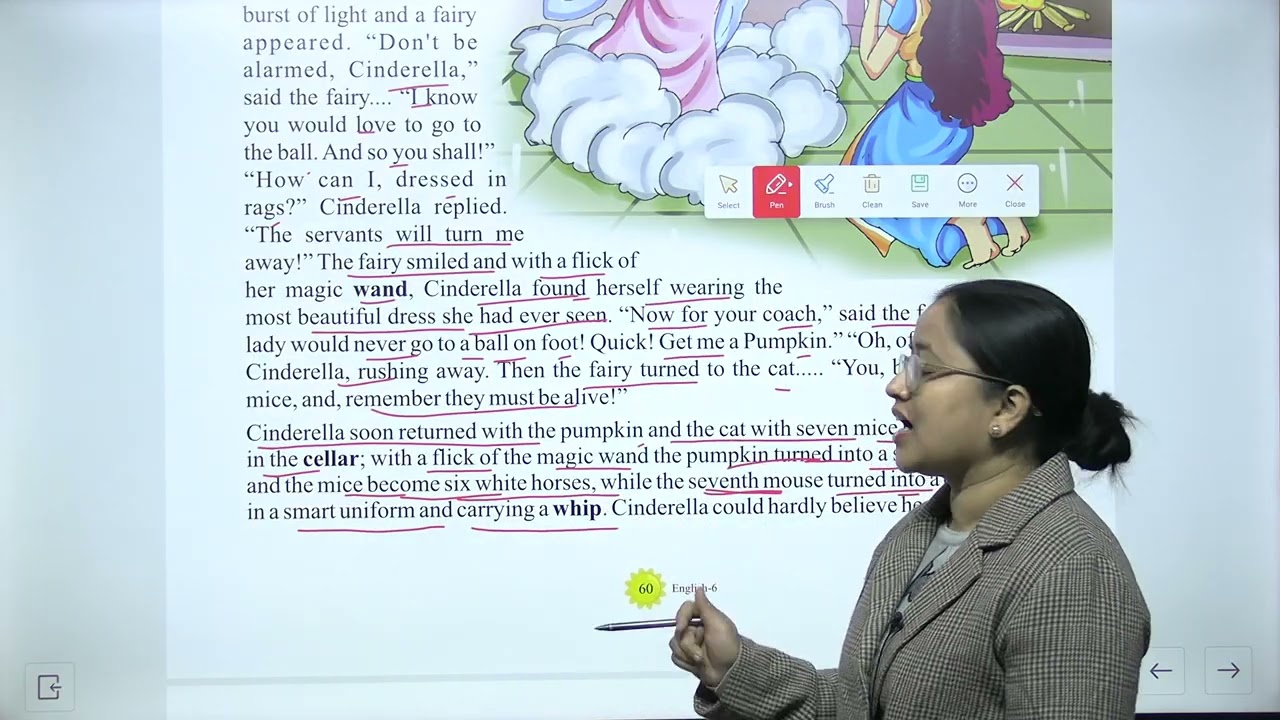 burst of light and a fairy
appeared. “Don't be
alarmed, Cinderella,”
said the fairy.... “I know
you would love to go to
the ball. And so you shall!”
“How can I, dressed in
rags?” Cinderella replied.
“The servants will turn me
away!” The fairy smiled and with a flick of
her magic wand, Cinderella found herself wearing the
most beautiful dress she had ever seen. “Now for your coach,” said the
lady would never go to a ball on foot! Quick! Get me a Pumpkin.” “Oh,
Cinderella, rushing away. Then the fairy turned to the cat..... “You,
mice, and, remember they must be alive!”
Cinderella soon returned with the pumpkin and the cat with seven mice
in the cellar; with a flick of the magic wand the pumpkin turned into a
and the mice become six white horses, while the seventh mouse turned into a
in a smart uniform and carrying a whip. Cinderella could hardly believe
Select Pen Brush Clean Save More Close
60 English-6